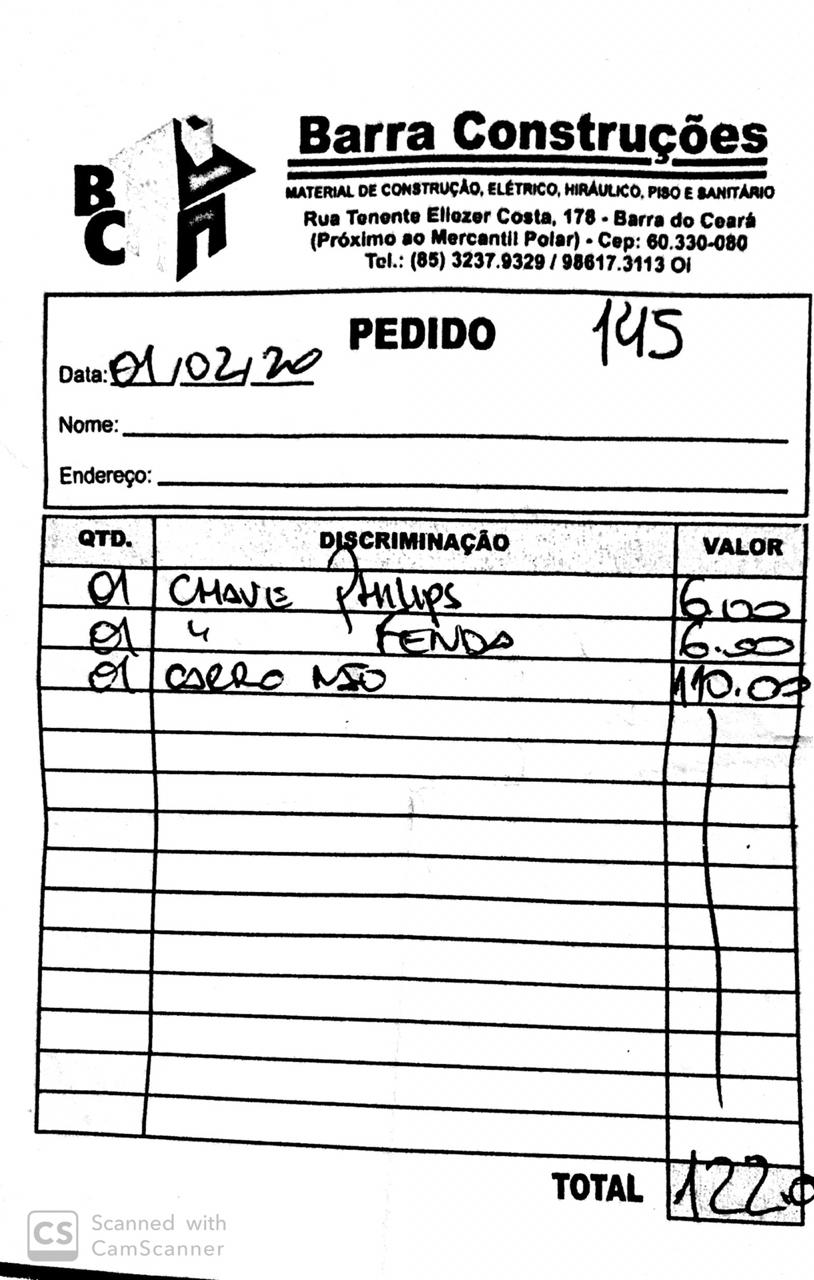 BC
Barra Construções
MATERIAL DE CONSTRUÇÃO, ELÉTRICO, HIRÁULICO, PISO E SANITÁRIO
Rua Tenente Eliezer Costa, 178 - Barra do Ceará
(Próximo ao Mercantil Polar) - Cep: 60.330-080
Tel.: (85) 3237.9329 / 98617.3113 Oi
PEDIDO 145
Data: 01/02/20
Nome:
Endereço:
QTD. DISCRIMINAÇÃO VALOR
01 CHAVE Philips 6.00
01 " FENDA 6.00
01 CARRO MÃO 110.00
TOTAL 122.0
CS Scanned with
CamScanner